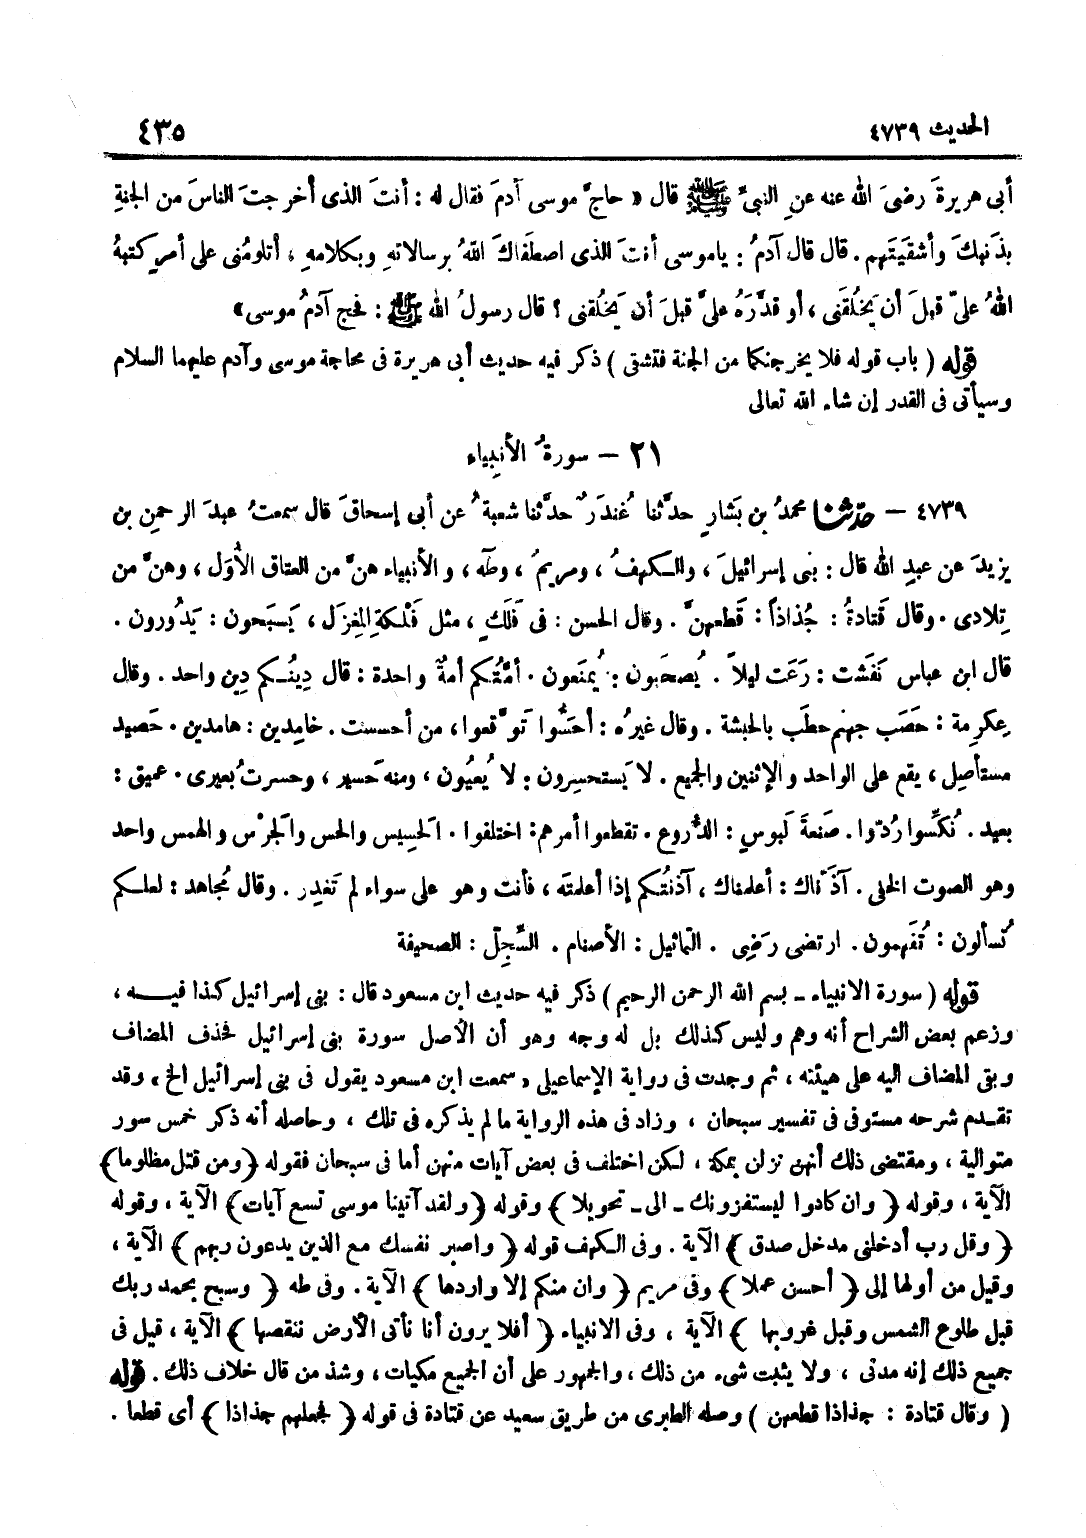 الحديث ٤٧٣٩
٤٣٥
أبى هريرةَ رضىَ اللّه عنه عنِ النبىِّ ﷺ قال « حاجَّ موسى آدمَ فقال له : أنتَ الذى أخرجتَ الناسَ من الجنةِ
بذَنبِكَ وأشقَيتَهم . قال قال آدمُ : ياموسى أنتَ الذى اصطَفاكَ اللّهُ برسالاتهِ وبكلامهِ ، أتلومُنى على أمرٍ كتبهُ
اللّهُ علىَّ قبلَ أن يَخلُقَنى ، أو قدَّرَهُ علىَّ قبلَ أن يَخلُقنى ؟ قال رسولُ اللّه ﷺ : فحج آدمُ موسى»
قوله ( باب قوله فلا يخرجنكما من الجنة فتشقى ) ذكر فيه حديث أبى هريرة فى محاجة موسى وآدم عليهما السلام
وسيأتى فى القدر إن شاء اللّه تعالى
٢١ – سورةُ الأنبِياء
٤٧٣٩ – حدّثنا محمدُ بن بَشارٍ حدَّثنا غُندَرٌ حدَّثنا شعبةُ عن أبى إسحاقَ قال سمعتُ عبدَ الرحمنِ بن
يزيدَ عن عبدِ اللّه قال : بنى إسرائيلَ ، والكهفُ ، ومريمُ ، وطٰهٰ ، والأنبياء هنَّ من العتاق الأُوَل ، وهنَّ من
تِلادى . وقال قَتادةُ : جُذاذاً : قَطعهنَّ . وقال الحسن : فى فَلَكٍ ، مثل فَلْكةِ المِغزَل ، يَسبَحون : يَدُورون .
قال ابن عباس نَفَشت : رَعَت ليلاً . يُصحَبون : يُمنَعون . أمَّتُكم أمةً واحدة : قال دِينُكم دِين واحد . وقال
عِكرِمة : حَصَب جهنم حطَب بالحبشة . وقال غيرُه : أحَسُّوا تَوقَّعوا ، من أحسست . خامِدين : هامدين . حَصيد
مستأصل ، يقع على الواحد والإثنين والجميع . لا يَستحسِرون : لا يُعيُون ، ومنه حَسير ، وحسرتُ بعيرى . عميق :
بعيد . نُكِّسوا رُدّوا . صَنعةَ لَبوسٍ : الدُّروع . تقطعوا أمرهم : اختلفوا . الحسِيس والحس والجرْس والهمس واحد
وهو الصوت الخفى . آذَنّاك : أعلمناك ، آذنتُكم إذا أعلمتَه ، فأنت وهو على سواء لم تَغدِر . وقال مُجاهد : لعلكم
تُسألون : تُفهمون . ارتضى رَضِى . التماثيل : الأصنام . السِّجلّ : الصحيفة
قوله ( سورة الانبياء - بسم اللّه الرحمن الرحيم ) ذكر فيه حديث ابن مسعود قال : بنى إسرائيل كذا فيه ،
وزعم بعض الشراح أنه وهم وليس كذلك بل له وجه وهو أن الأصل سورة بنى إسرائيل فحذف المضاف
وبقى المضاف اليه على هيئته ، ثم وجدت فى رواية الإسماعيلى « سمعت ابن مسعود يقول فى بنى إسرائيل الخ » وقد
تقدم شرحه مستوفى فى تفسير سبحان ، وزاد فى هذه الرواية ما لم يذكره فى تلك ، وحاصله أنه ذكر خمس سور
متوالية ، ومقتضى ذلك أنهن نزلن بمكة ، لكن اختلف فى بعض آيات منهن أما فى سبحان فقوله ﴿ ومن قتل مظلوما ﴾
الآية ، وقوله ﴿ وان كادوا ليستفزونك - الى - تحويلا ﴾ وقوله ﴿ ولقد آتينا موسى تسع آيات ﴾ الآية ، وقوله
﴿ وقل رب أدخلنى مدخل صدق ﴾ الآية . وفى الكهف قوله ﴿ واصبر نفسك مع الذين يدعون ربهم ﴾ الآية ،
وقيل من أولها إلى ﴿ أحسن عملا ﴾ وفى مريم ﴿ وان منكم إلا واردها ﴾ الآية . وفى طه ﴿ وسبح بحمد ربك
قبل طلوع الشمس وقبل غروبها ﴾ الآية ، وفى الانبياء ﴿ أفلا يرون أنا نأتى الأرض ننقصها ﴾ الآية ، قيل فى
جميع ذلك إنه مدنى ، ولا يثبت شىء من ذلك ، والجمهور على أن الجميع مكيات ، وشذ من قال خلاف ذلك . قوله
( وقال قتادة : جذاذا قطعهن ) وصله الطبرى من طريق سعيد عن قتادة فى قوله ﴿ فجعلهم جذاذا ﴾ أى قطعا .